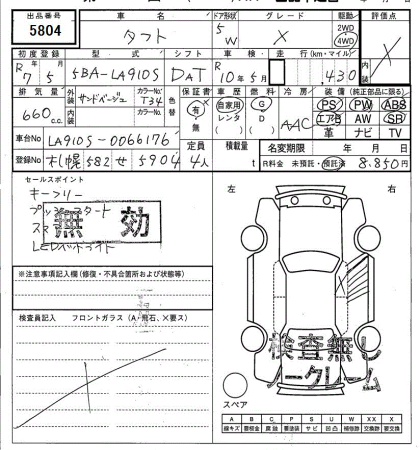 出品番号 車名 ドア形状 グレード 駆動 評価点
5804 タフト 5 W X 2WD 4WD 内装
初度登録 型式 シフト 車検 走行(km・マイル)
R 7年 5月 5BA-LA910S DAT R 10年 5月 430
排気量 外装色 カラーNo. 色替 保証書 車歴 燃料 冷房 装備(純正部品に限る)
660 c.c. サンドベージュ T34 有 無 自家用 レンタ ( ) G D AAC PS PW ABS
内装 カラーNo. エアB AW SR
革 ナビ TV
車台No LA910S-0066176 定員 積載量 名変期限 年 月 日
登録No 札幌 582 せ 5904 4人 t R料金 未預託・預託済 8.850円
セールスポイント
キーフリー
プッシュスタート
無効
LEDヘッドライト
左 右
※注意事項記入欄(修復・不具合箇所および状態等)
検査員記入 フロントガラス(A・飛石、X要ス)
検査無し
ノークレーム
スペア
A B C P S U W X XX X
線キズ 要板金 腐蝕 要塗装 サビ 凹凸 補修跡 交換跡 要交換